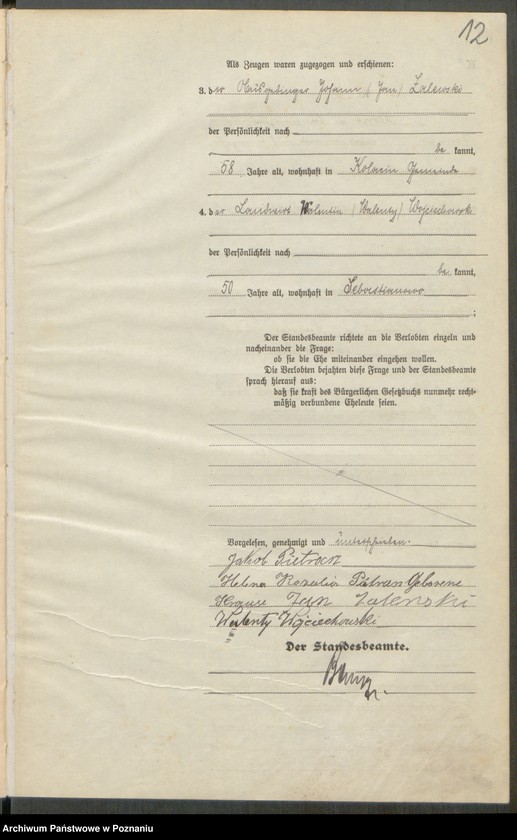 12
Als Zeugen waren zugezogen und erschienen:
3. der Johann (Jan) Zalewski
der Persönlichkeit nach
be kannt,
58 Jahre alt, wohnhaft in Kolacin Gemeinde
4. der Landwirt Walentin (Walenty) Wojciechowski
der Persönlichkeit nach
be kannt,
50 Jahre alt, wohnhaft in Sebastianowo
;
Der Standesbeamte richtete an die Verlobten einzeln und
nacheinander die Frage:
ob sie die Ehe miteinander eingehen wollen.
Die Verlobten bejahten diese Frage und der Standesbeamte
sprach hierauf aus:
daß sie kraft des Bürgerlichen Gesetzbuchs nunmehr recht-
mäßig verbundene Eheleute seien.
Vorgelesen, genehmigt und unterschrieben.
Jakob Pietran
Helena Rozalia Pietran Geborene
Krause Jan Zalewski
Walenty Wojciechowski
Der Standesbeamte.
Archiwum Państwowe w Poznaniu